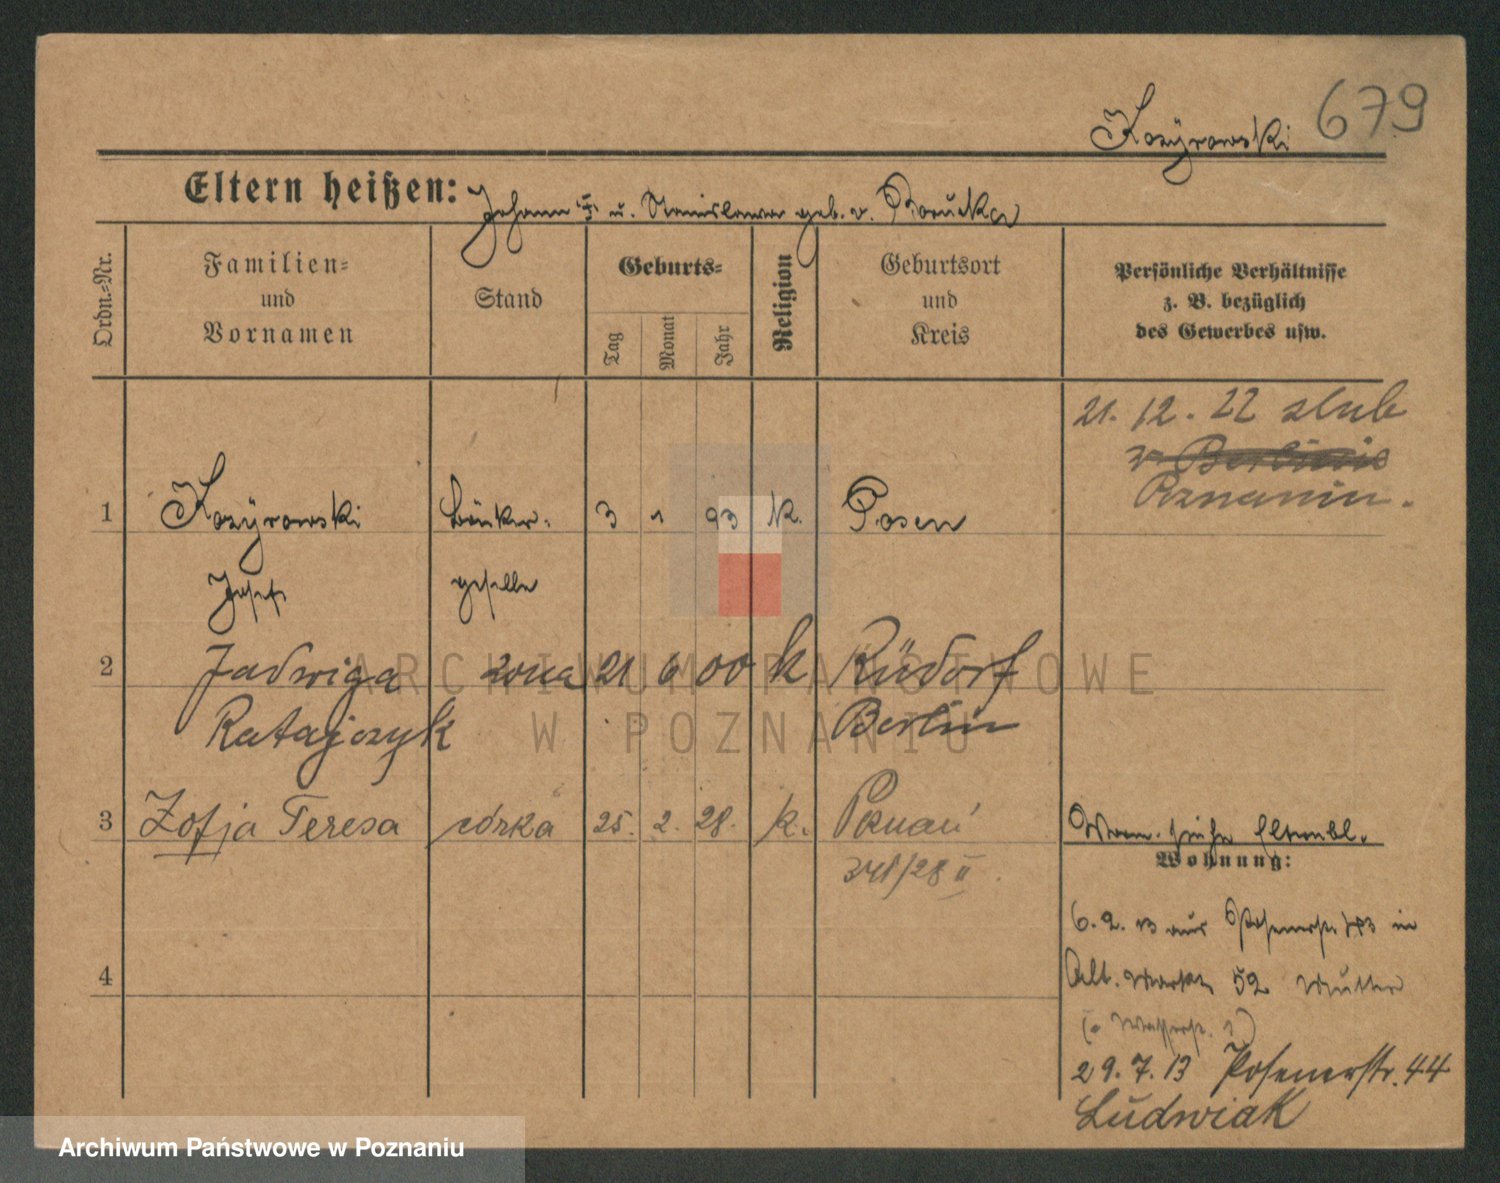 Kozyrowski 679
Eltern heißen: Johann † u. Stanislawa geb. v.
Ordn.-Nr.
Familien- und Vornamen
Stand
Geburts-
Tag
Monat
Jahr
Religion
Geburtsort und Kreis
Persönliche Verhältnisse
z. B. bezüglich
des Gewerbes usw.
21. 12. 22 slub
w Berlinie
Poznaniu.
1 Kozÿrowski Bäcker- 3 1 93 k. Posen
Josef geselle
2 Jadwiga żona 21 6 00 k Rüdorf
Ratajczyk Berlin
3 Zofja Teresa córka 25. 2. 28. k. Poznań
Wom. siehe Elternbl.
Wohnung:
348/28 II
6. 2. 13 aus Posenerstr. in
4
Alt. Markt 52 Mutter
29. 7. 13 Posenerstr. 44
Ludwiak
ARCHIWUM PAŃSTWOWE
W POZNANIU
Archiwum Państwowe w Poznaniu